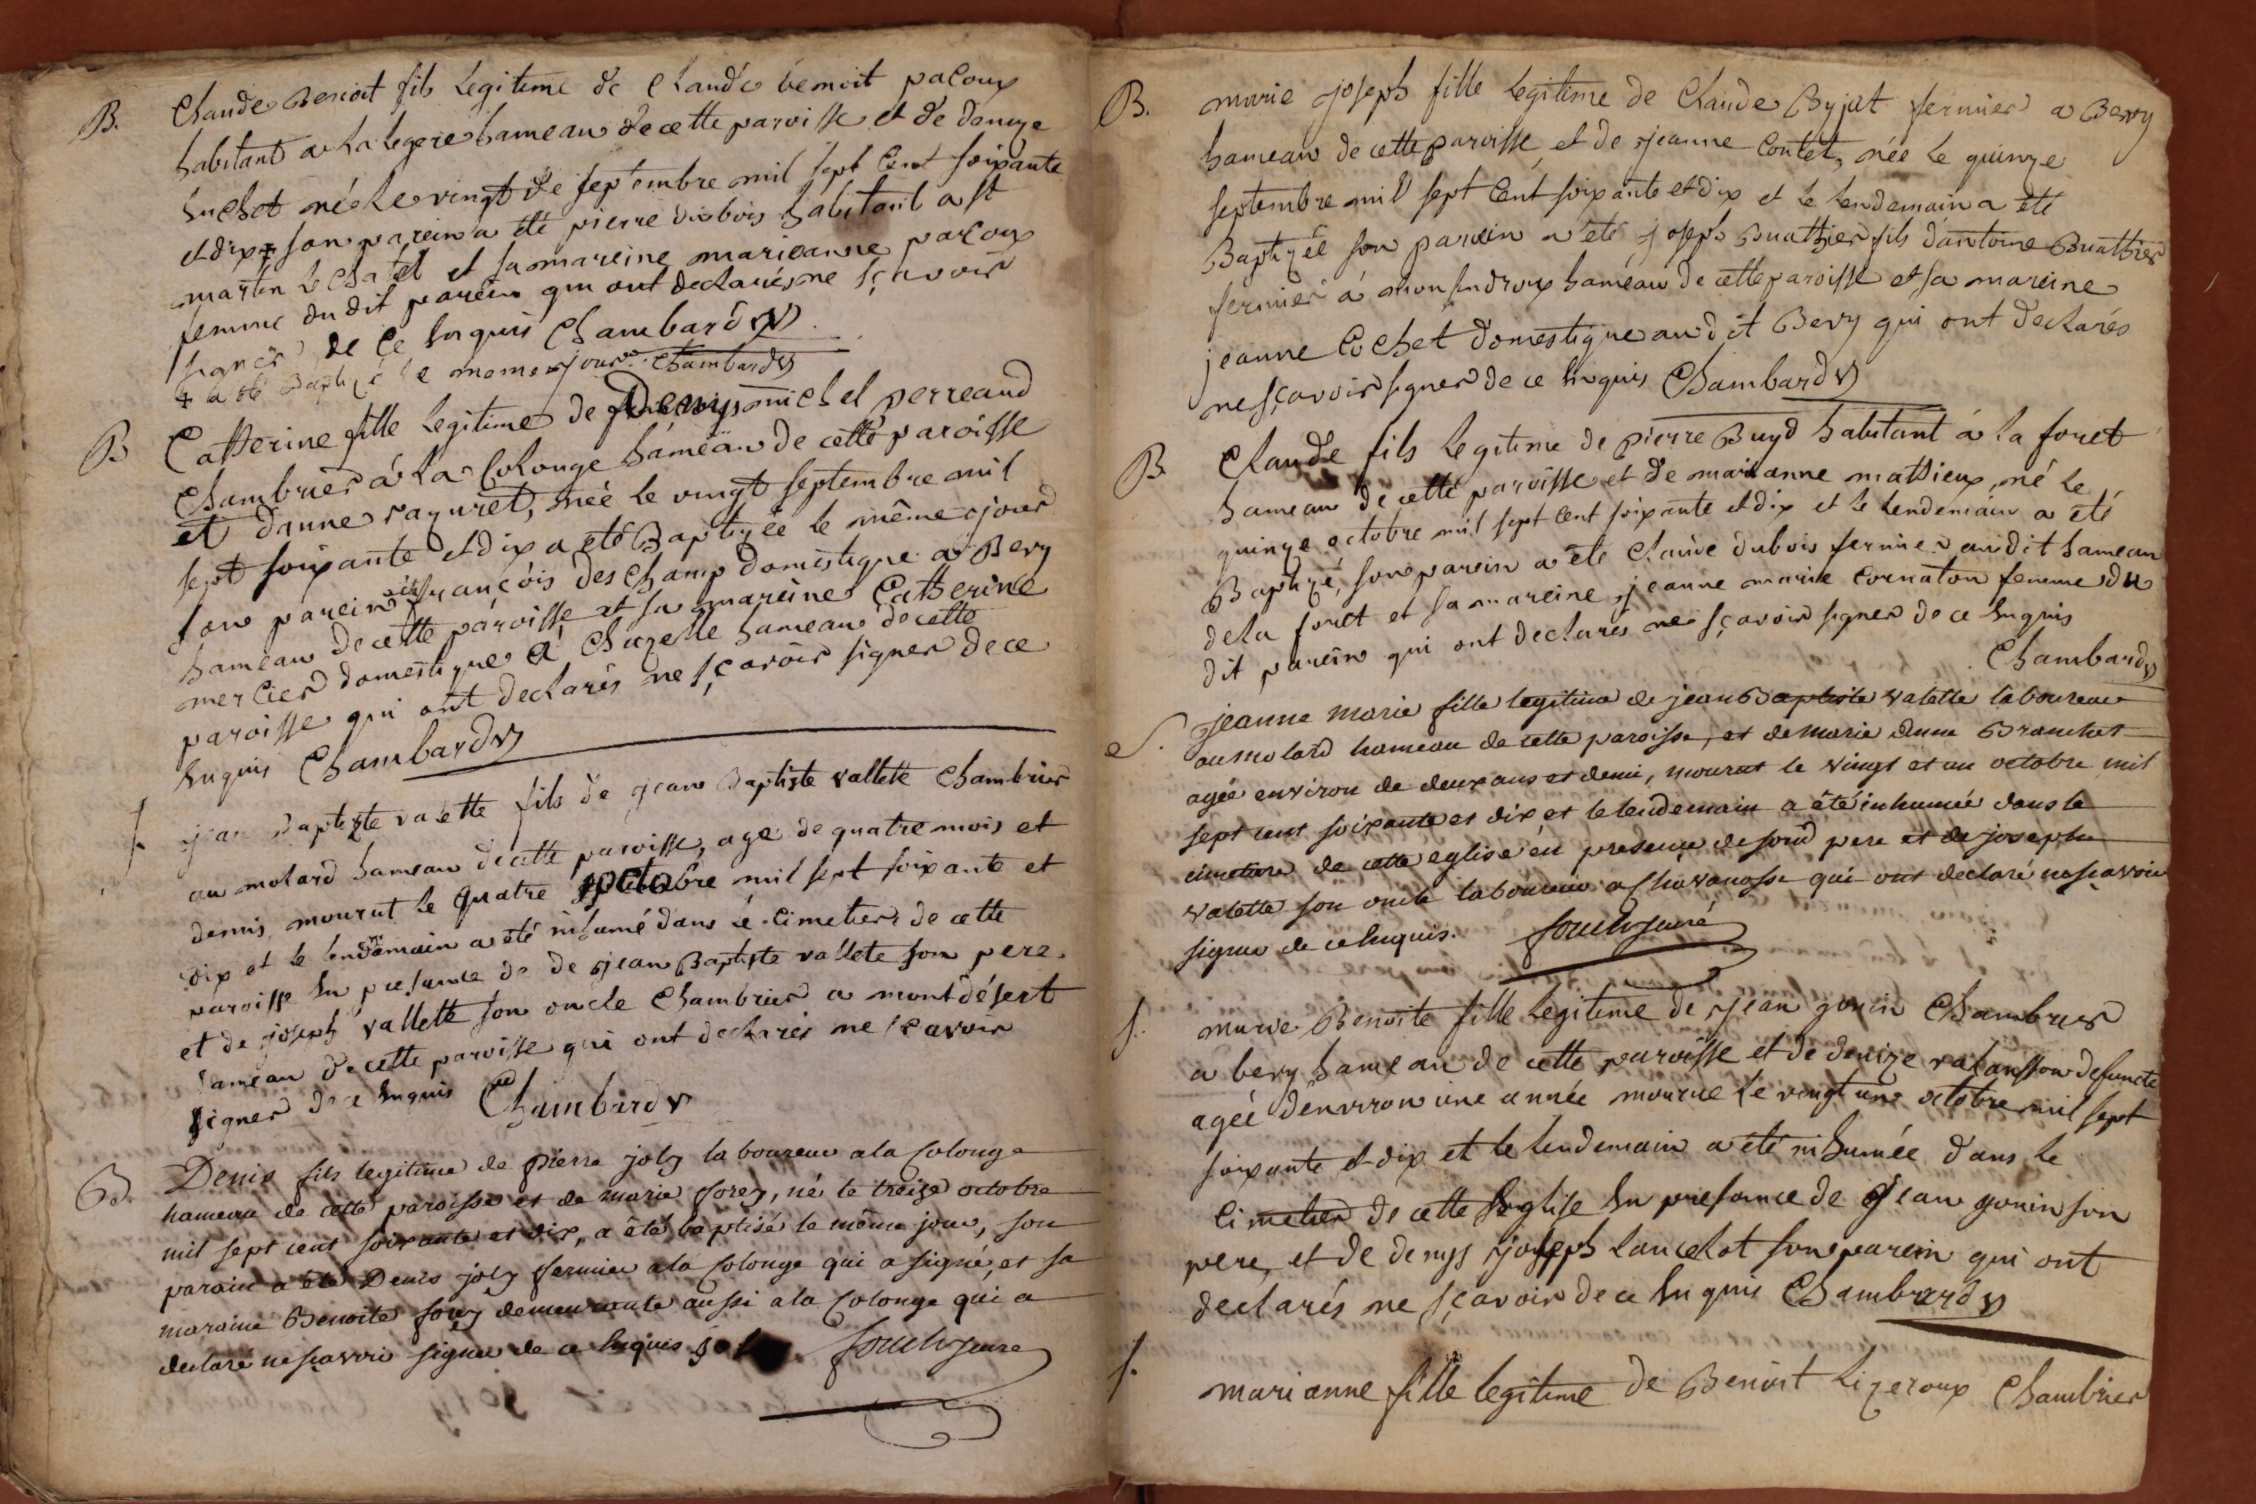 B. Claude Benoit fils legitime de Claude benoit pacoux
habitant a la legere hameau de cette paroisse et de denize
huchet né le vingt de septembre mil sept cent soixante
et dix ‡ son parein a été pierre dubois habitant a st
martin le chatel et sa mareine marieanne pacoux
femme du dit parein qui ont declarés ne sçavoir
signer de ce enquis Chambard v
‡ a été Baptizé le meme jour. Chambard v
B Catherine fille legitime de Denys michel perreaud
Chambrier à la Colonge hameau de cette paroisse
et danne razuret, née le vingt septembre mil
sept soixante et dix a eté Baptizée le même jour
son parein a été françois deschamp domestique a Bevy
hameau de cette paroisse et sa mareine Catherine
mercier domestique à Chazelle hameau de cette
paroisse qui ont declarés ne sçavoir signer de ce
enquis Chambard v
S. jean Baptizte valette fils de jean Baptizte vallette Chambrier
au molard hameau de cette paroisse, age de quatre mois et
demis mourut le quatre octobre mil sept soixante et
dix et le lendemain a été inhumé dans le cimetiere de cette
paroisse En presance de de jean Baptizte vallete son pere
et de joseph vallette son oncle Chambrier a montdésert
hameau de cette paroisse qui ont declarés ne scavoir
signer de ce enquis Chambard v
B. Denis fils legitime de pierre joly laboureur a la Colonge
hameau de cette paroisse et de marie forey, né le treize octobre
mil sept cent soixante et dix, a été baptisé le même jour, son
parain a été Denis joly fermier a la Colonge qui a signé, et sa
maraine Benoite forey demeurante aussi a la Colonge qui a
declaré ne scavoir signer de ce enquis
B. marie joseph fille legitime de Claude Byjat fermier a Bevy
hameau de cette paroisse, et de jeanne Contet, née le quinze
septembre mil sept Cent soixante et dix et le lendemain a été
Baptizée son parein a été joseph Buathier fils dantoine Buathier
fermier à monsindroux hameau de cette paroisse et sa mareine
jeanne Cochet domestique audit Bevy qui ont declarés
ne sçavoir signer de ce enquis Chambard v
B. Claude fils legitime de pierre Buyd habitant à la foret
hameau de cette paroisse et de marianne mathieux, né le
quinze octobre mil sept cent soixante et dix et le lendemain a été
Baptizé, son parein a été Claude dubois fermier audit hameau
de la foret et sa mareine jeanne marie Cornaton femme du
dit parein qui ont declarés ne sçavoir signer de ce enquis
Chambard v
S. jeanne Marie fille legitime de jean Baptiste valette laboureur
au molard hameau de cette paroisse, et de Marie Anne Branchet
agée environ de deux ans et demi, mourut le vingt et un octobre mil
sept cent soixante et dix et le lendemain a été inhumée dans le
cimetiere de cette eglise en presence de soud pere et de joseph
valette son oncle laboureur a Chavanosse qui ont declaré ne scavoir
signer de ce enquis.
S. marie Benoite fille legitime de jean gonin Chambrier
a bevy hameau de cette paroisse et de denize valansson defuncte
agée denviron une année mourue le vingt un octobre mil sept
soixante et dix et le lendemain a été inhumée dans le
Cimetier de cette Eglise En presance de Jean gonin son
pere, et de denys joseph lancelot son parein qui ont
declarés ne sçavoir de ce enquis Chambard v
S. marianne fille legitime de Benoit Lizeroux Chambrier